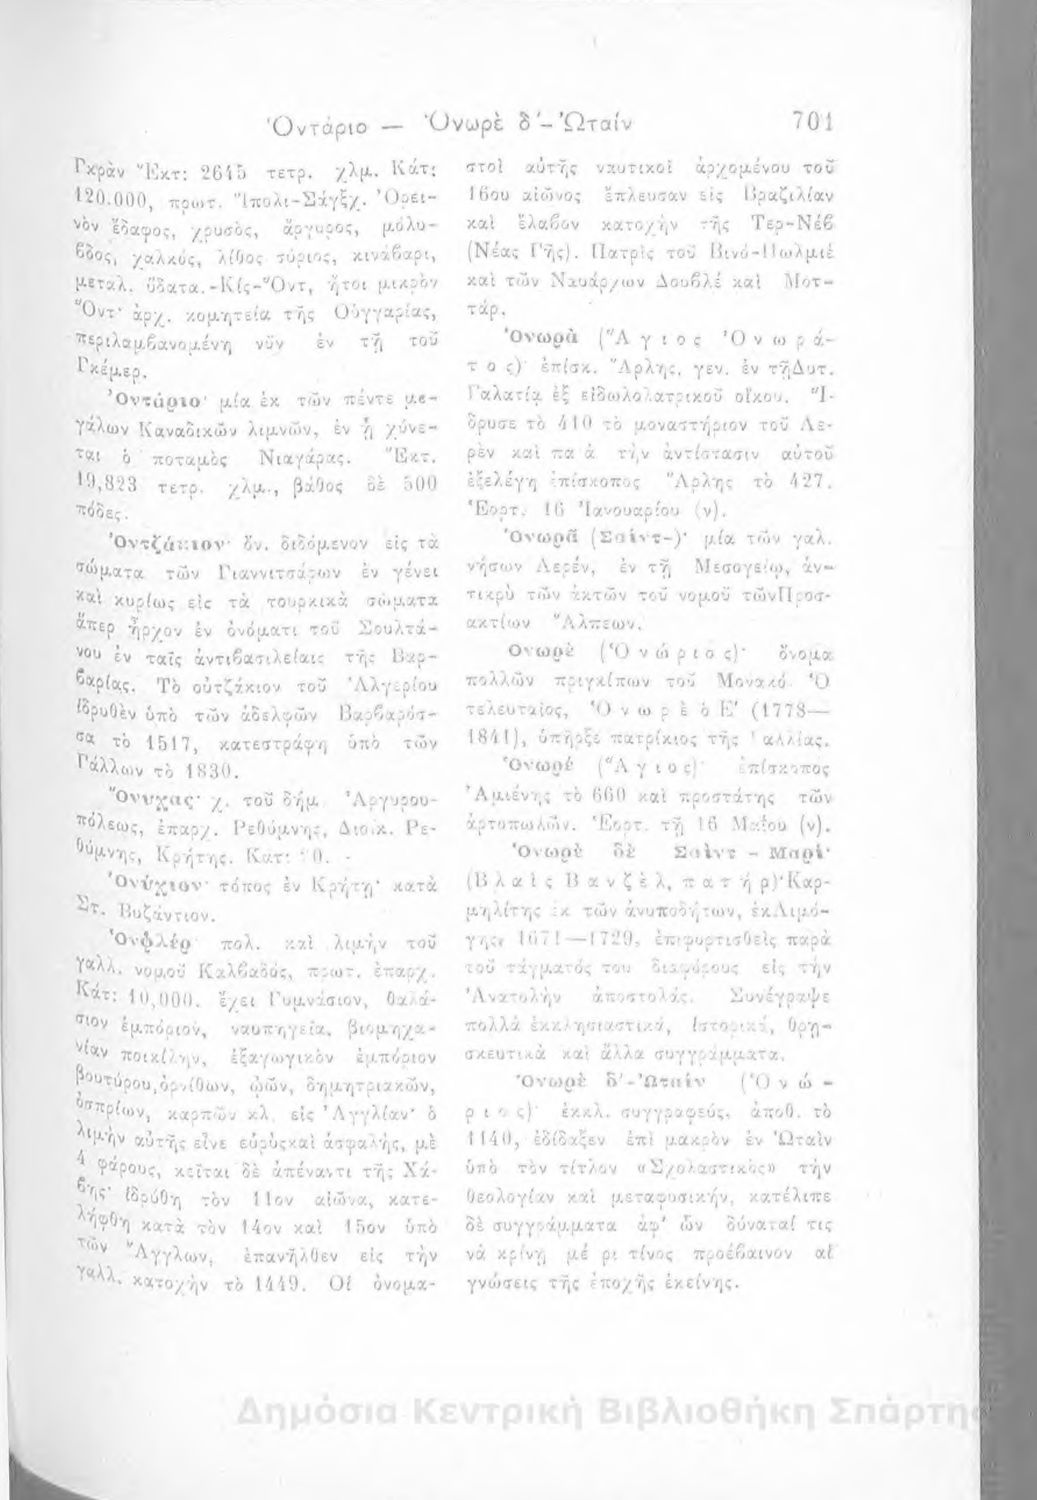 Ὀντάριο — Ὀνωρὲ δ'-Ὠταίν 701
Γκρὰν Ἔκτ: 2645 τετρ. χλμ. Κάτ:
120.000, πρωτ. Ἴπολι-Σάγξχ. Ὀρει-
νὸν ἔδαφος, χρυσὸς, ἄργυρος, μόλυ-
βδος, χαλκός, λίθος σύριος, κινάβαρι,
μεταλ. ὕδατα.-Κίς-Ὄντ, ἤτοι μικρὸν
Ὄντ· ἀρχ. κομητεία τῆς Οὐγγαρίας,
περιλαμβανομένη νῦν ἐν τῇ τοῦ
Γκέμερ.
Ὀντάριο· μία ἐκ τῶν πέντε με-
γάλων Καναδικῶν λιμνῶν, ἐν ᾗ χύνε-
ται ὁ ποταμὸς Νιαγάρας. Ἔκτ.
19,823 τετρ. χλμ., βάθος δὲ 500
πόδες.
Ὀντζάκιον· ὄν. διδόμενον εἰς τὰ
σώματα τῶν Γιαννιτσάρων ἐν γένει
καὶ κυρίως εἰς τὰ τουρκικὰ σώματα
ἅπερ ἦρχον ἐν ὀνόματι τοῦ Σουλτά-
νου ἐν ταῖς ἀντιβασιλείαις τῆς Βαρ-
βαρίας. Τὸ οὐτζάκιον τοῦ Ἀλγερίου
ἱδρυθὲν ὑπὸ τῶν ἀδελφῶν Βαρβαρόσ-
σα τὸ 1517, κατεστράφη ὑπὸ τῶν
Γάλλων τὸ 1830.
Ὄνυχας· χ. τοῦ δήμ. Ἀργυρου-
πόλεως, ἐπαρχ. Ρεθύμνης, Διοικ. Ρε-
θύμνης, Κρήτης. Κατ:
Ὀνύχιον· τόπος ἐν Κρήτῃ· κατὰ
Στ. Βυζάντιον.
Ὀνφλέρ· πολ. καὶ λιμὴν τοῦ
γαλλ. νομοῦ Καλβαδός, πρωτ. ἐπαρχ.
Κάτ: 10,000. ἔχει Γυμνάσιον, θαλά-
σιον ἐμπόριον, ναυπηγεῖα, βιομηχα-
νίαν ποικίλην, ἐξαγωγικὸν ἐμπόριον
βουτύρου,ὀρνίθων, ὠῶν, δημητριακῶν,
ὀσπρίων, καρπῶν κλ. εἰς Ἀγγλίαν· ὁ
λιμὴν αὐτῆς εἶνε εὐρὺςκαὶ ἀσφαλής, μὲ
4 φάρους, κεῖται δὲ ἀπέναντι τῆς Χά-
βης· ἱδρύθη τὸν 11ον αἰῶνα, κατε-
λήφθη κατὰ τὸν 14ον καὶ 15ον ὑπὸ
τῶν Ἄγγλων, ἐπανῆλθεν εἰς τὴν
γαλλ. κατοχὴν τὸ 1449. Οἱ ὀνομα-
στοὶ αὐτῆς ναυτικοὶ ἀρχομένου τοῦ
16ου αἰῶνος ἔπλευσαν εἰς Βραζιλίαν
καὶ ἔλαβον κατοχὴν τῆς Τερ-Νέβ
(Νέας Γῆς). Πατρὶς τοῦ Βινό-Πωλμιέ
καὶ τῶν Ναυάρχων Δουβλέ καὶ Μοτ-
τάρ.
Ὀνωρὰ (Ἅγιος Ὀνωρά-
τος)· ἐπίσκ. Ἄρλης, γεν. ἐν τῇΔυτ.
Γαλατίᾳ ἐξ εἰδωλολατρικοῦ οἴκου. Ἵ-
δρυσε τὸ 410 τὸ μοναστήριον τοῦ Λε-
ρὲν καὶ πα ὰ τὴν ἀντίστασιν αὐτοῦ
ἐξελέγη ἐπίσκοπος Ἄρλης τὸ 427.
Ἑορτ. 16 Ἰανουαρίου (ν).
Ὀνωρᾶ (Σαίντ-)· μία τῶν γαλ.
νήσων Λερέν, ἐν τῇ Μεσογείῳ, ἀν-
τικρὺ τῶν ἀκτῶν τοῦ νομοῦ τῶνΠροσ-
ακτίων Ἄλπεων.
Ονωρὲ (Ὀνώριος)· ὄνομα
πολλῶν πριγκίπων τοῦ Μονακό. Ὁ
τελευταῖος, Ὀνωρὲ ὁ Ε' (1778—
1841), ὑπῆρξε πατρίκιος τῆς Γαλλίας.
Ὀνωρέ (Ἅγιος)· ἐπίσκοπος
Ἀμιένης τὸ 660 καὶ προστάτης τῶν
ἀρτοπωλῶν. Ἑορτ. τῇ 16 Μαΐου (ν).
Ὀνωρὲ δὲ Σαὶντ - Μαρί·
(Βλαὶς Βανζὲλ, πατήρ)·Καρ-
μηλίτης ἐκ τῶν ἀνυποδήτων, ἐκΛιμό-
γης 1671—1729, ἐπιφορτισθεὶς παρὰ
τοῦ τάγματός του διαφόρους εἰς τὴν
Ἀνατολὴν ἀποστολάς. Συνέγραψε
πολλὰ ἐκκλησιαστικά, ἱστορικά, θρη-
σκευτικὰ καὶ ἄλλα συγγράμματα.
Ὀνωρὲ δ'-Ὠταίν (Ὀνώ-
ριος)· ἐκκλ. συγγραφεύς, ἀποθ. τὸ
1140, ἐδίδαξεν ἐπὶ μακρὸν ἐν Ὠταὶν
ὑπὸ τὸν τίτλον «Σχολαστικὸς» τὴν
θεολογίαν καὶ μεταφυσικήν, κατέλιπε
δὲ συγγράμματα ἀφ' ὧν δύναταί τις
νὰ κρίνῃ μέ ρι τίνος προέβαινον αἱ
γνώσεις τῆς ἐποχῆς ἐκείνης.
Δημόσια Κεντρική Βιβλιοθήκη Σπάρτης